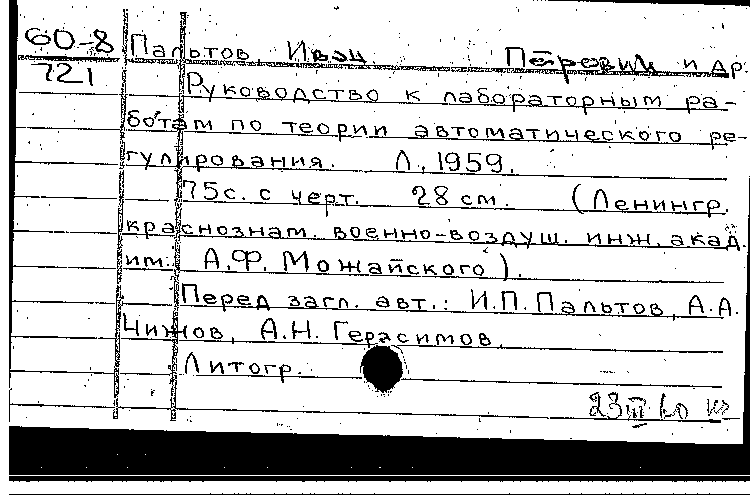 60-8 Пальтов, Иван Петрович и др.
721
Руководство к лабораторным ра-
ботам по теории автоматического ре-
гулирования. Л., 1959.
75с. с черт. 28 см. (Ленингр.
краснознам. военно-воздуш. инж. акад.
им. А.Ф. Можайского).
Перед загл. авт.: И.П. Пальтов, А.А.
Чижов, А.Н. Герасимов.
Литогр.
23 III 60